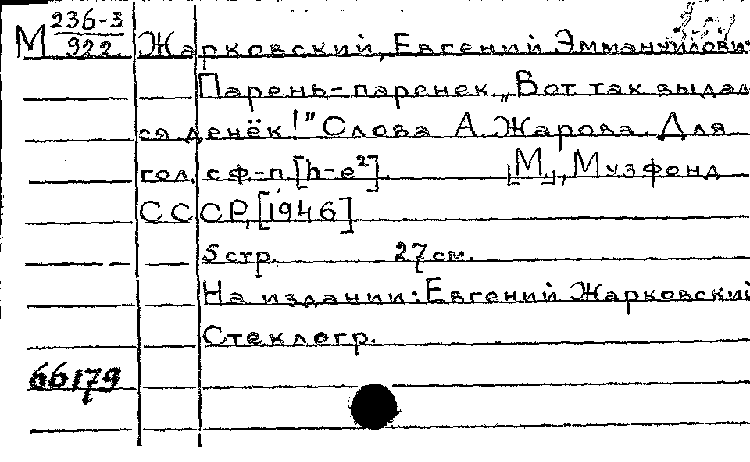 М 236-3
922 Жарковский, Евгений Эммануилович
Парень-паренек. „Вот так выдал
ся денёк!" Слова А. Жарова. Для
гол. с ф-п. [h-e²]. [М.], Музфонд
СССР, [1946]
5 стр. 27 см.
На издании: Евгений Жарковский
Стеклогр.
66179